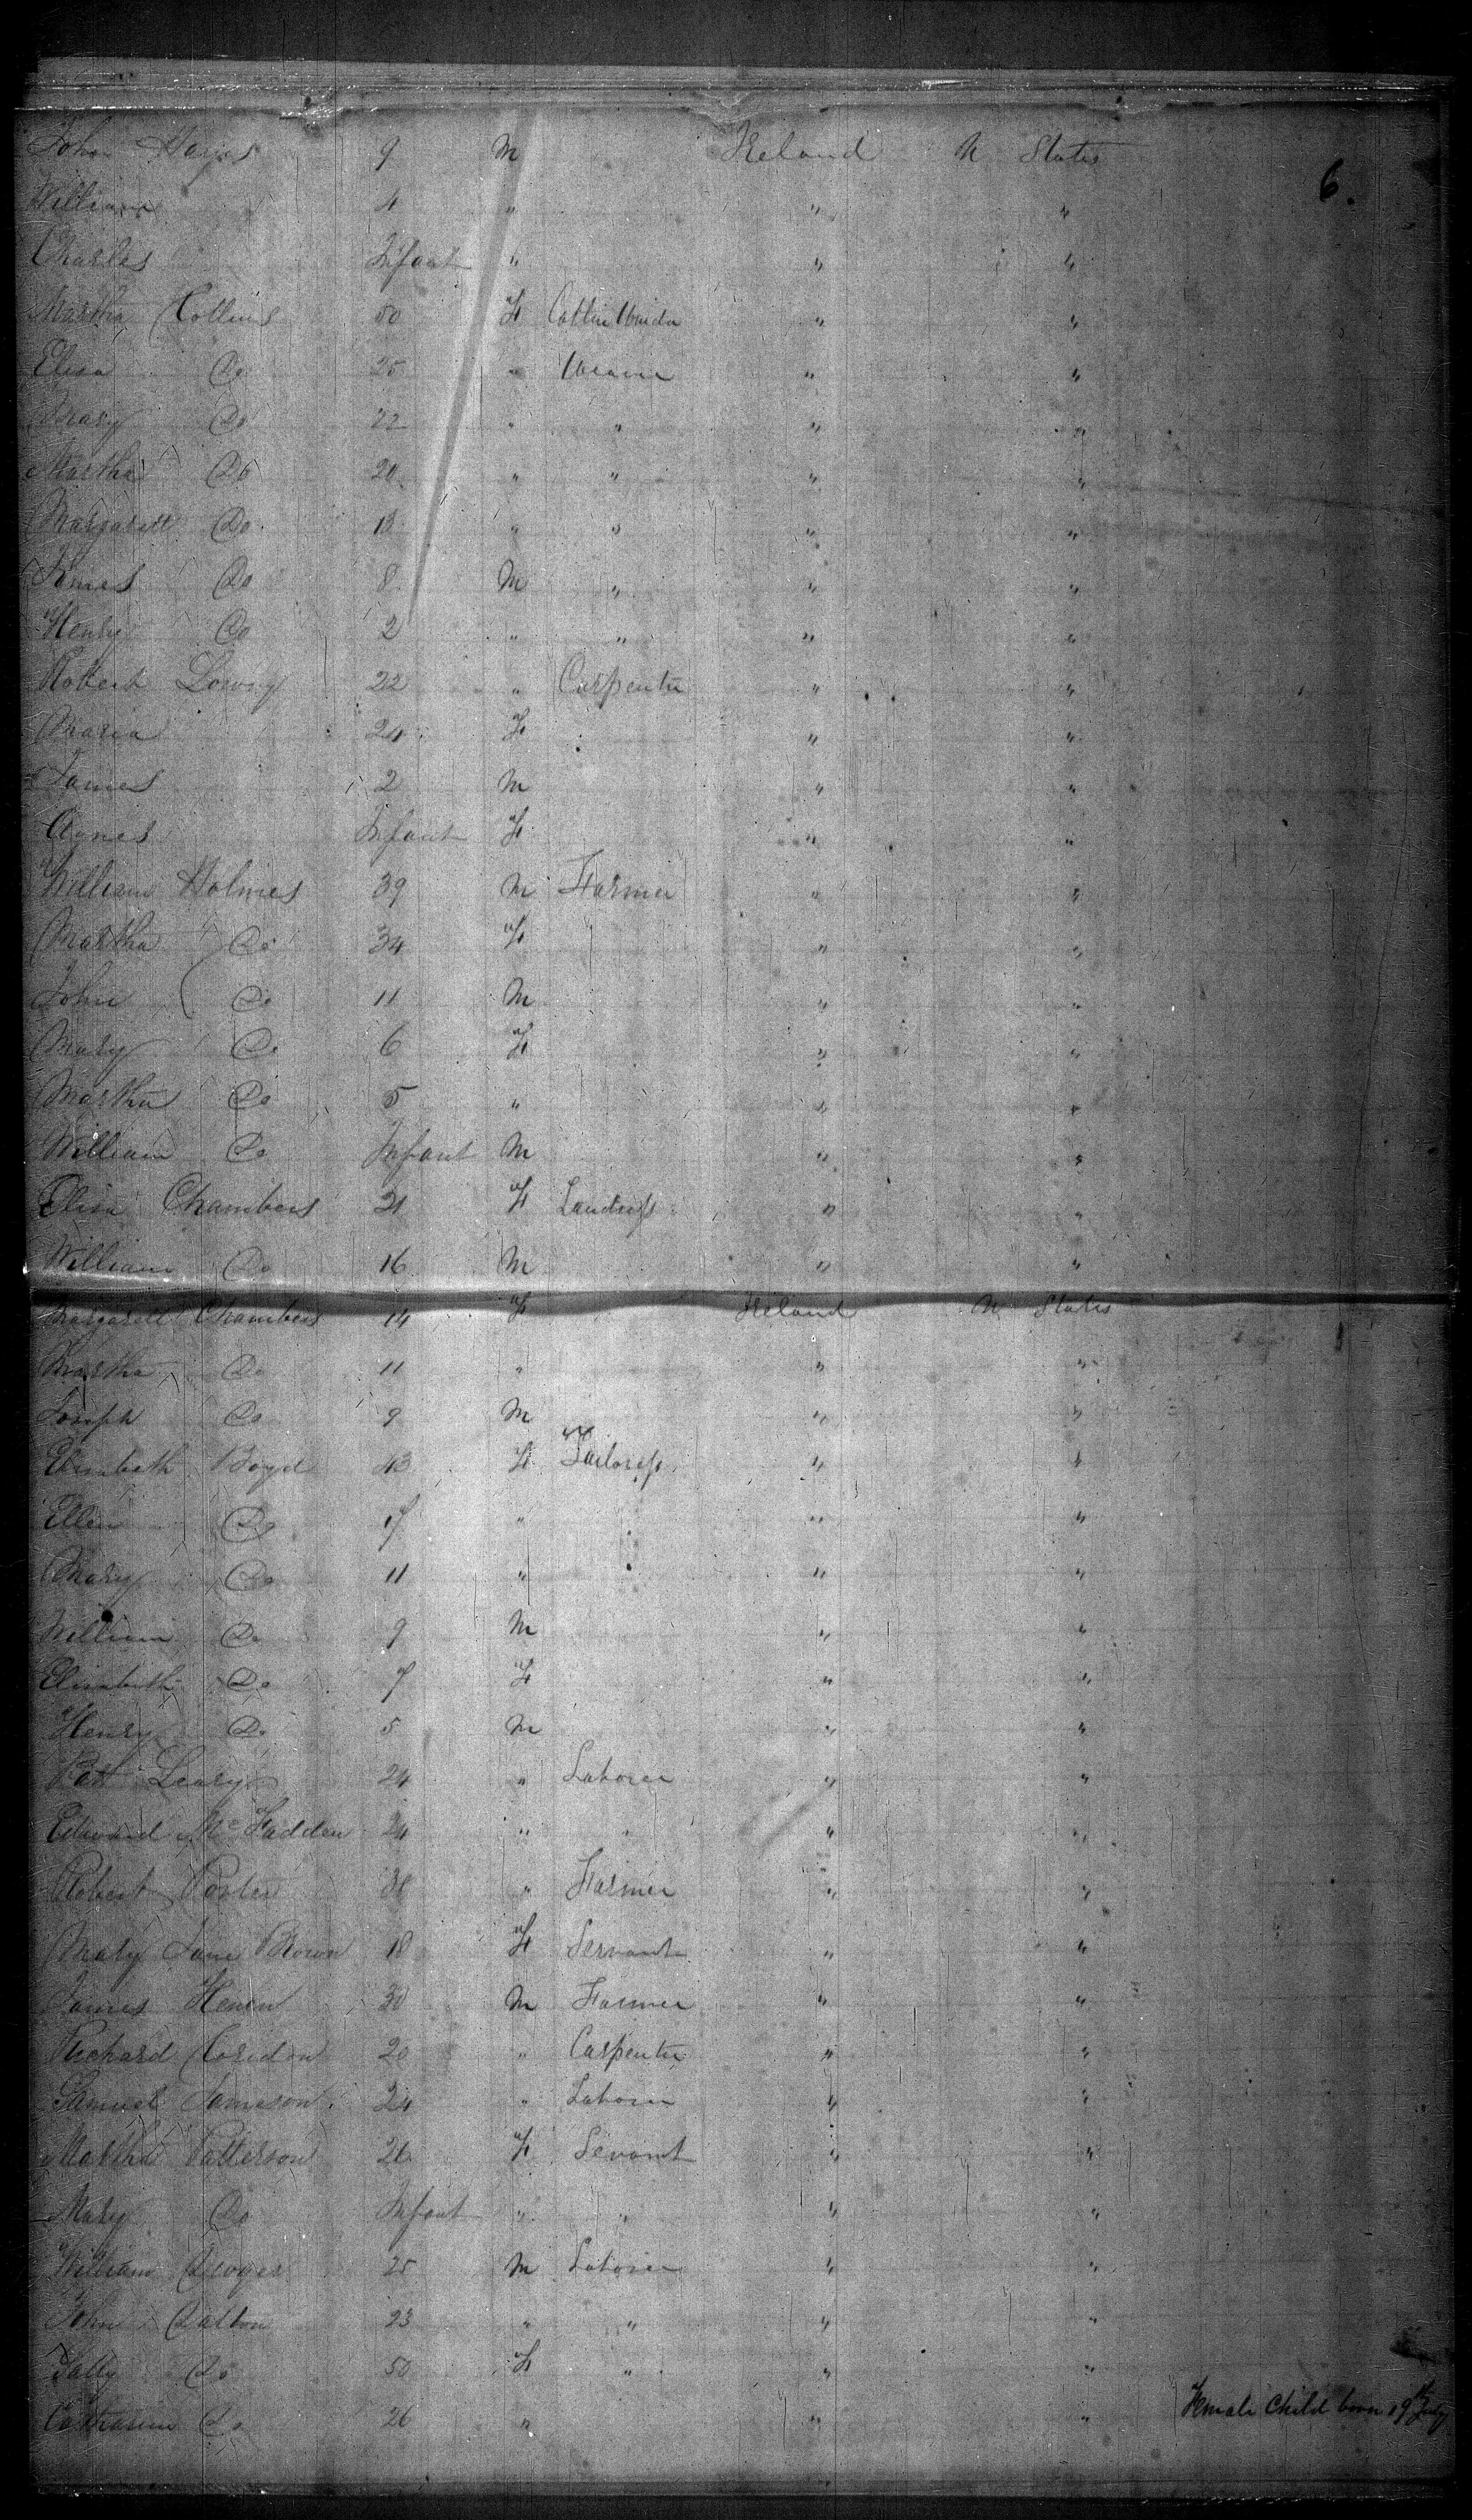 John Hayes 9 M Ireland U States
6.
William 4 " " "
Charles Infant " " "
Martha Collins 50 F " "
Elisa Do 25 " Weaver " "
Mary Do 22 " " " "
Martha Do 20 " " " "
Margarett Do 13 " " " "
James Do 8 M " " "
Henry Do 2 " " " "
Robert Lowry 22 " Carpenter " "
Maria 24 F " "
James 2 M " "
Agnes Infant F " "
William Holmes 39 M Farmer " "
Martha Do 34 F " "
John Do 11 M " "
Mary Do 6 F " "
Martha Do 5 " " "
William Do Infant M " "
Elisa Chambers 21 F Landress " "
William Do 16 M " "
Margarett Chambers 14 F Ireland U States
Martha Do 11 " " "
Joseph Do 9 M " "
Elisabeth Boyd 43 F Tailoress " "
Ellen Do 17 " " "
Mary Do 11 " " "
William Do 9 M " "
Elisabeth Do 7 F " "
Henry Do 5 M " "
Patt Leary 24 " Laborer " "
Edward McFadden 24 " " " "
Robert Porter 38 " Farmer " "
Mary Jane Brown 18 F Servant " "
James 30 M Farmer " "
Richard 20 " Carpenter " "
Samuel Jameson 24 " Laborer " "
Martha Patterson 26 F Sevant " "
Mary Do Infant " " " "
William 25 M Laborer " "
John Dalton 23 " " " "
Sally Do 50 F " " "
Catharine Do 26 " " " Female Child born 19th July